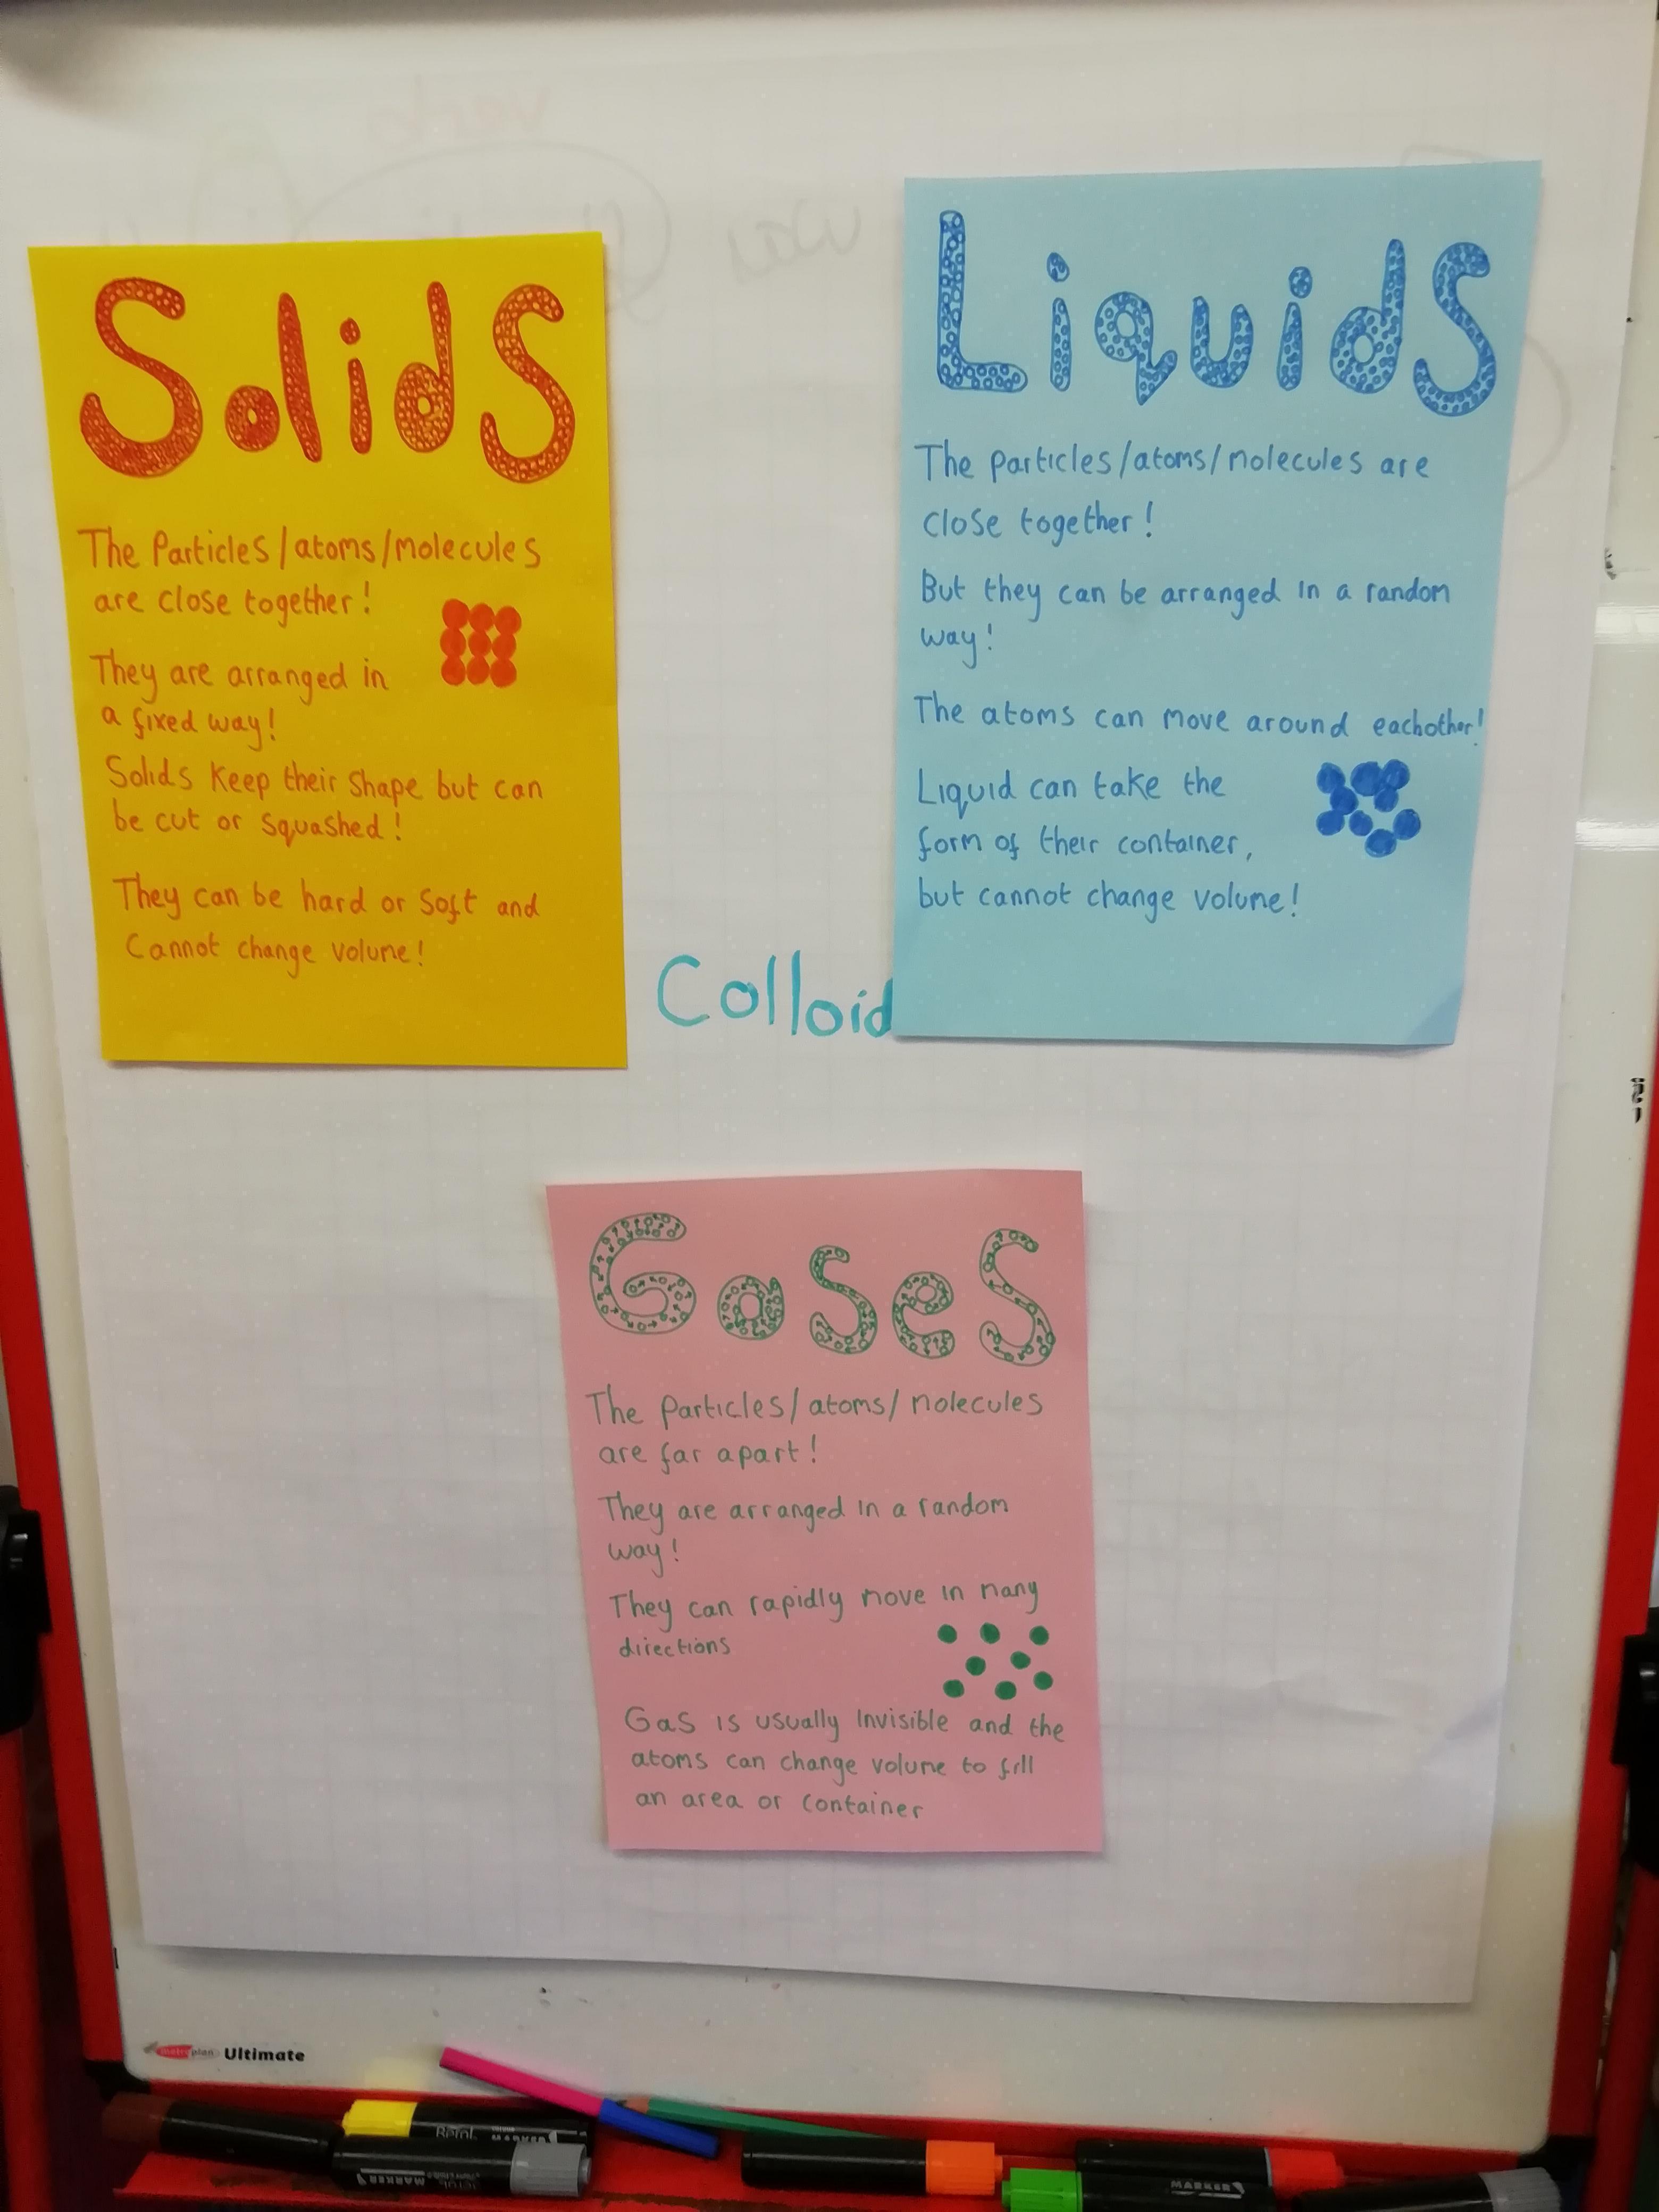 Solids
The Particles/atoms/molecules
are close together!
They are arranged in
a fixed way!
Solids keep their shape but can
be cut or squashed!
They can be hard or soft and
Cannot change volume!
Liquids
The particles/atoms/molecules are
close together!
But they can be arranged in a random
way!
The atoms can move around eachother!
Liquid can take the
form of their container,
but cannot change volume!
Colloid
Gases
The particles/atoms/molecules
are far apart!
They are arranged in a random
way!
They can rapidly move in many
directions
Gas is usually invisible and the
atoms can change volume to fill
an area or container
metroplan Ultimate
Berol MARKER
MARKER
MARKER